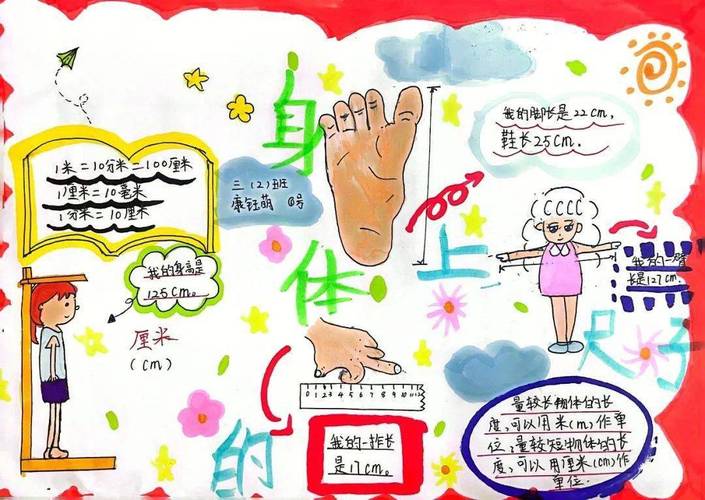 身体上的尺子
1米=10分米=100厘米
1厘米=10毫米
1分米=10厘米
三(2)班
康钰萌 号
我的脚长是22cm,
鞋长25cm.
我的身高是
125cm。
厘米
(cm)
我的一臂
长是127cm.
0 1 2 3 4 5 6 7 8 9 10 11 12
我的一拃长
是17cm。
量较长物体的长
度,可以用米(m)作单
位;量较短物体的长
度,可以用厘米(cm)作
单位.